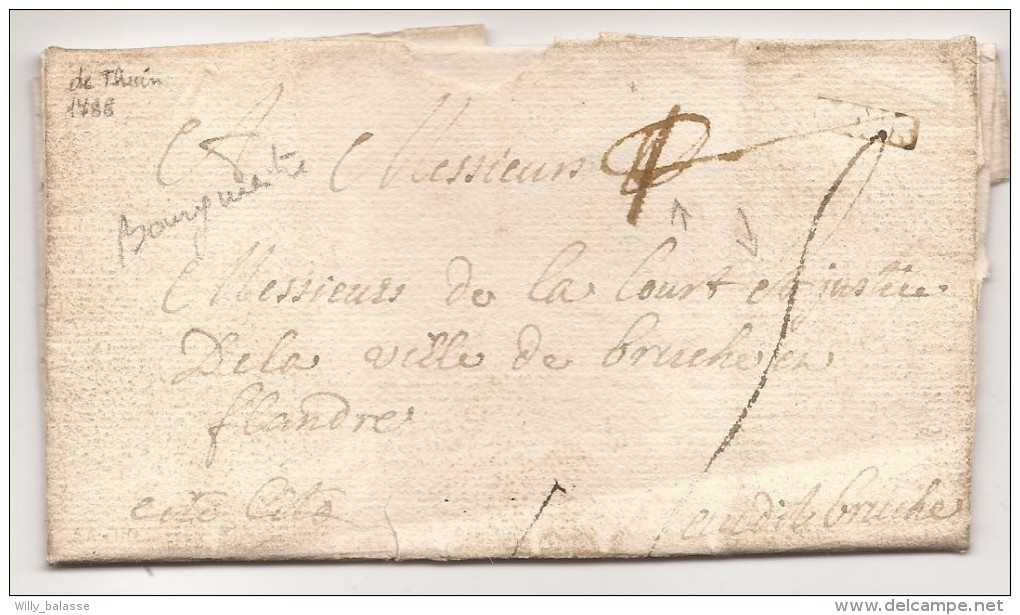 de Thuin
1788
A Messieurs
Bourgmaitre
Messieurs de la Court et justice
Dela ville de bruche en
flandre
cito Cito
audit bruche
Willy_balasse
delcampe.net